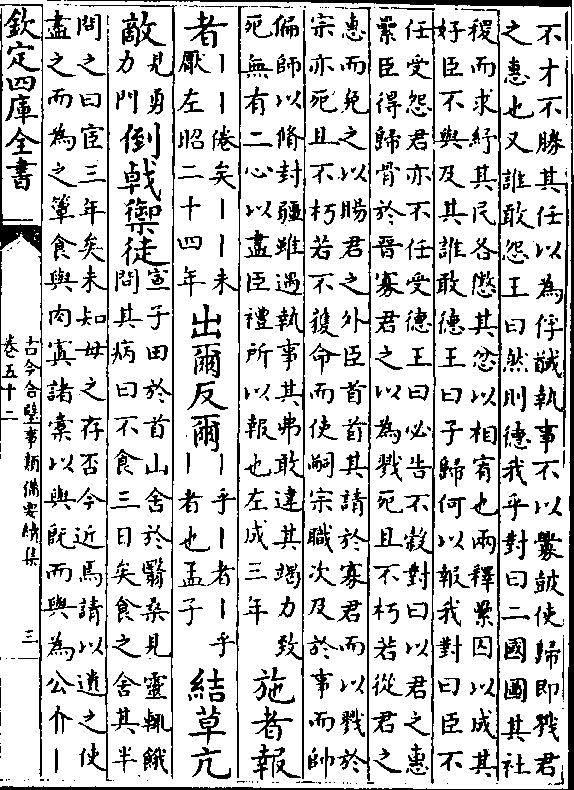 不才不勝其任以為俘馘執事不以釁鼓使歸即戮君
之惠也又誰敢怨王曰然則德我乎對曰二國圖其社
稷而求紓其民各懲其忿以相宥也兩釋纍囚以成其
好臣不與及其誰敢德王曰子歸何以報我對曰臣不
任受怨君亦不任受德王曰必告不穀對曰以君之惠
纍臣得歸骨於晉寡君之以為戮死且不朽若從君之
惠而免之以賜君之外臣首首其請於寡君而以戮於
宗亦死且不朽若不獲命而使嗣宗職次及於事而帥
偏師以脩封疆雖遇執事其弗敢違其竭力致
死無有二心以盡臣禮所以報也左成三年
施者報
者
丨丨倦矣丨丨未
厭左昭二十四年
出爾反爾
丨乎丨者丨乎
丨者也孟子
結草亢
敵
見勇
力門
倒戟禦徒
宣子田於首山舍於翳桑見靈輒餓
問其病曰不食三日矣食之舍其半
問之曰宦三年矣未知母之存否今近焉請以遺之使
盡之而為之簞食與肉寘諸橐以與既而與為公介丨
欽定四庫全書
古今合璧事類備要續集
卷五十二
三